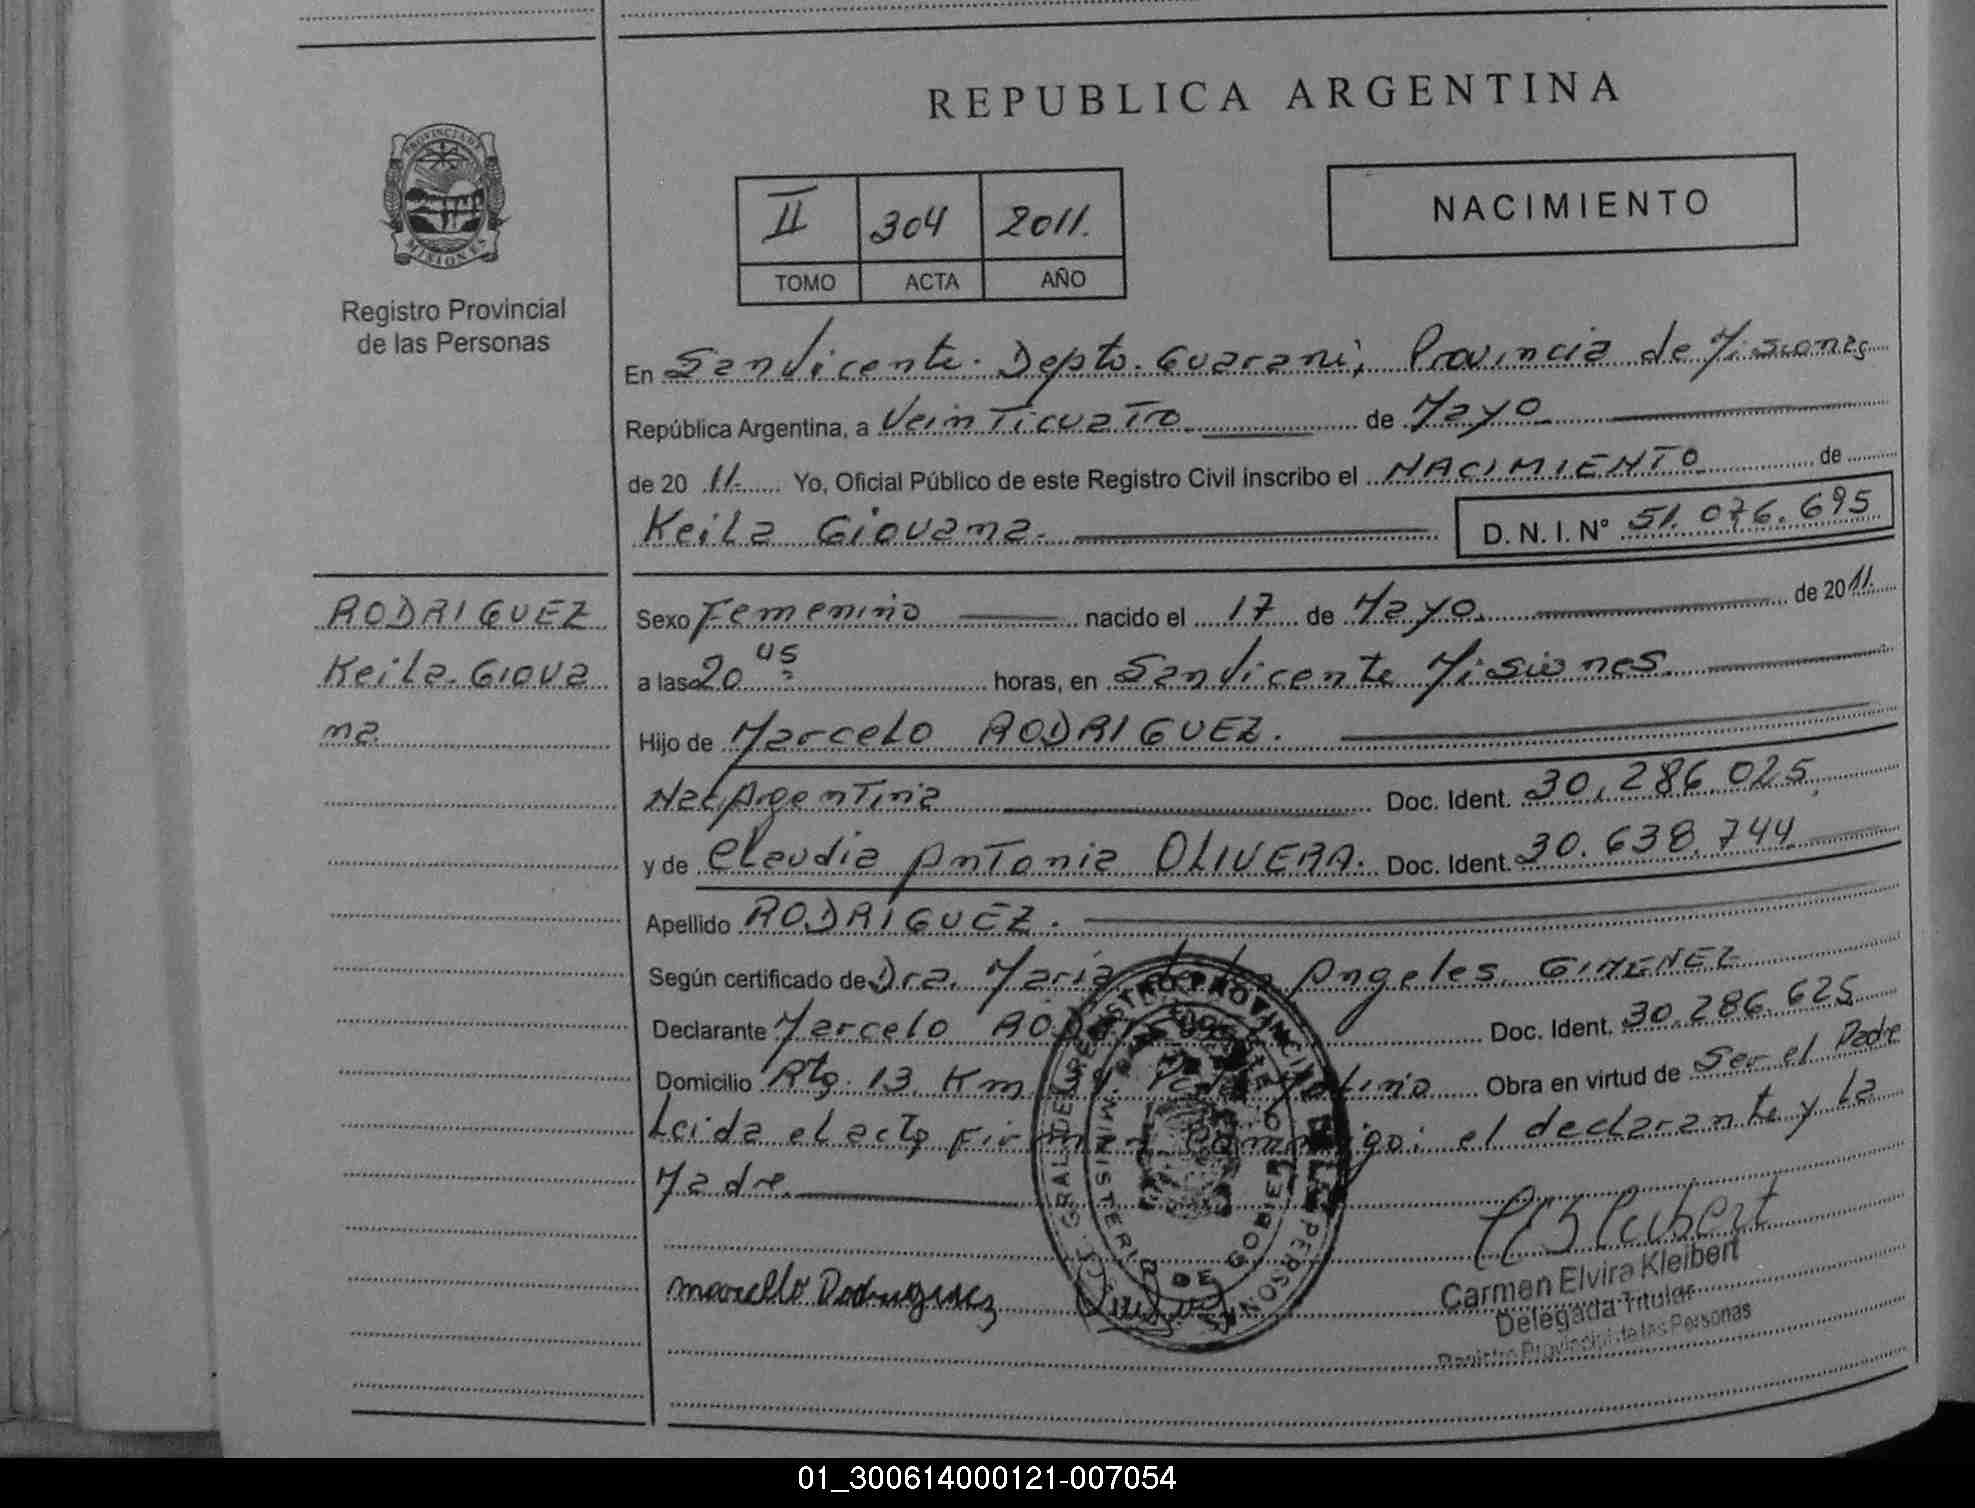 REPUBLICA ARGENTINA
PROVINCIA DE
MISIONES
Registro Provincial
de las Personas
II 304 2011.
TOMO ACTA AÑO
NACIMIENTO
En San Vicente. Depto. Guarani, Provincia de Misiones
República Argentina, a Veinticuatro de Mayo
de 20 11. Yo, Oficial Público de este Registro Civil inscribo el NACIMIENTO de
Keila Giovana. D. N. I. N° 51.076.695
RODRIGUEZ
Keila Giova
na.
Sexo Femenino nacido el 17 de Mayo. de 2011.
a las 20 45 horas, en San Vicente Misiones.
Hijo de Marcelo RODRIGUEZ.
Nac. Argentina Doc. Ident. 30.286.025
y de Claudia Antonia OLIVERA. Doc. Ident. 30.638.744
Apellido RODRIGUEZ.
Según certificado de Dra. Maria de los Angeles GIMENEZ
Declarante Marcelo RODRIGUEZ Doc. Ident. 30.286.625
Domicilio Rta. 13 Km Obra en virtud de Ser el Padre
Leida el acta Firman Conmigo: el declarante y la
Madre.
marcello Rodriguez
Carmen Elvira Kleibert
Delegada Titular
Registro Provincial de las Personas
MINISTERIO DE GOBIERNO
01_300614000121-007054